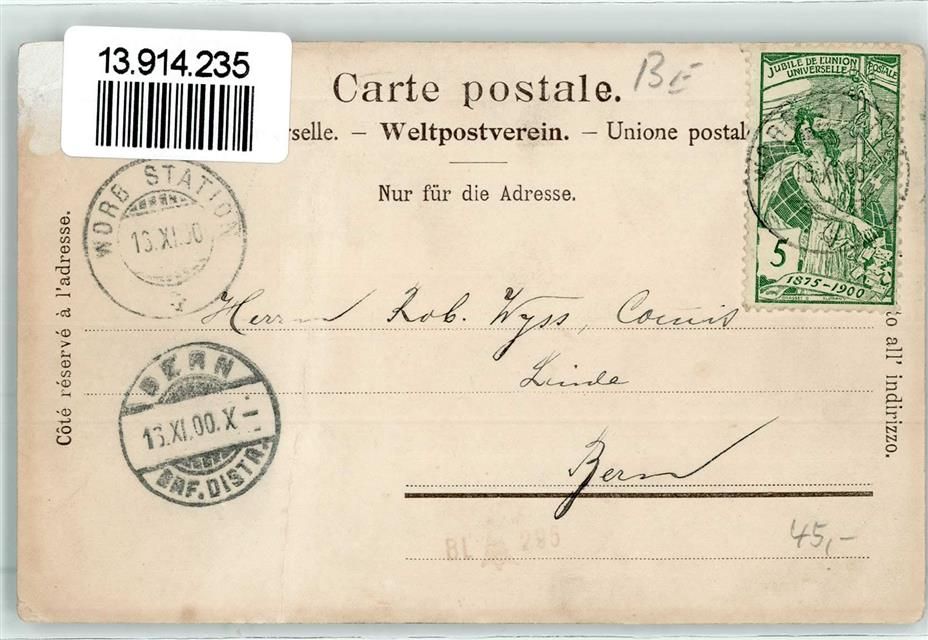 13.914.235
BE
Carte postale.
rselle. – Weltpostverein. – Unione postal
Nur für die Adresse.
JUBILÉ DE L'UNION
UNIVERSELLE POSTALE
5
1875–1900
WORB STATION
13.XI.00
Côté réservé à l'adresse.
to all' indirizzo.
Herrn Rob. Wyss, Comis
Linde
Bern
BERN
13.XI.00.X–
BRF.DISTR.
BL 285
45,-